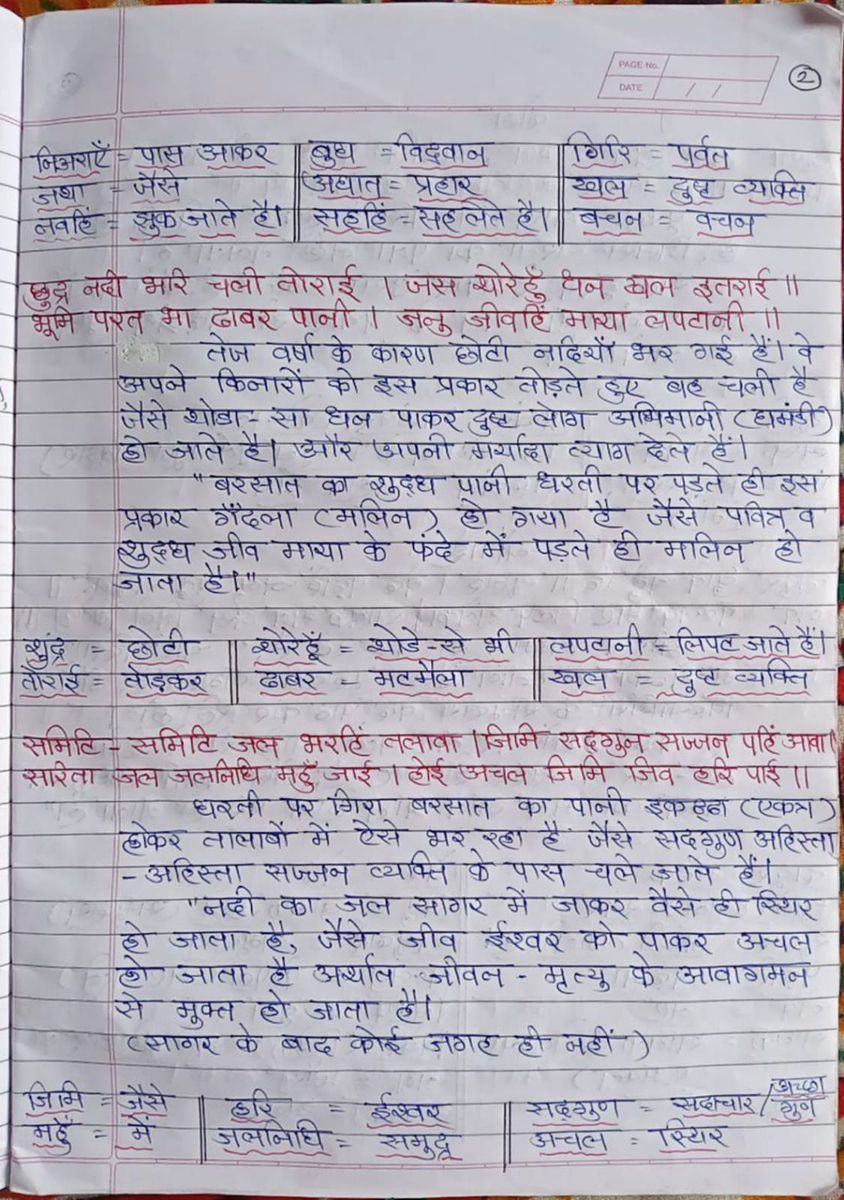 PAGE No.
DATE / /
2
निअराएँ = पास आकर || बुध = विद्वान || गिरि = पर्वत
जथा = जैसे || अघात = प्रहार || खल = दुष्ट व्यक्ति
नवहिं = झुक जाते है। || सहहिं = सह लेते है। || बचन = वचन
छुद्र नदी भरि चली तोराई । जस थोरेहुँ धन खल इतराई ॥
भूमि परत भा ढाबर पानी । जनु जीवहिं माया लपटानी ॥
तेज वर्षा के कारण छोटी नदियाँ भर गई हैं। वे
अपने किनारों को इस प्रकार तोड़ते हुए बह चली है
जैसे थोडा-सा धन पाकर दुष्ट लोग अभिमानी (घमंडी)
हो जाते है। और अपनी मर्यादा त्याग देते हैं।
"बरसात का शुद्ध पानी धरती पर पड़ते ही इस
प्रकार गँदला (मलिन) हो गया है जैसे पवित्र व
शुद्ध जीव माया के फंदे में पड़ते ही मलिन हो
जाता है।"
शुंद्र = छोटी || थोरेहूँ = थोडे-से भी || लपटानी = लिपट जाते हैं।
तोराई = तोड़कर || ढाबर = मटमैला || खल = दुष्ट व्यक्ति
समिटि - समिटि जल भरहिं तलावा । जिमि सदगुन सज्जन पहिं आवा।
सरिता जल जलनिधि महुँ जाई । होई अचल जिमि जिव हरि पाई ॥
धरती पर गिरा बरसात का पानी इकट्ठा (एकत्र)
होकर तालाबों में ऐसे भर रहा है जैसे सदगुण अहिस्ता
- अहिस्ता सज्जन व्यक्ति के पास चले जाते हैं।
"नदी का जल सागर में जाकर वैसे ही स्थिर
हो जाता है, जैसे जीव ईश्वर को पाकर अचल
हो जाता है अर्थात जीवन - मृत्यु के आवागमन
से मुक्त हो जाता है।
(सागर के बाद कोई जगह ही नहीं)
जिमि = जैसे || हरि = ईश्वर || सद्गुण = सदाचार/अच्छा गुन
महुँ = में || जलनिधि = समुद्र || अचल = स्थिर